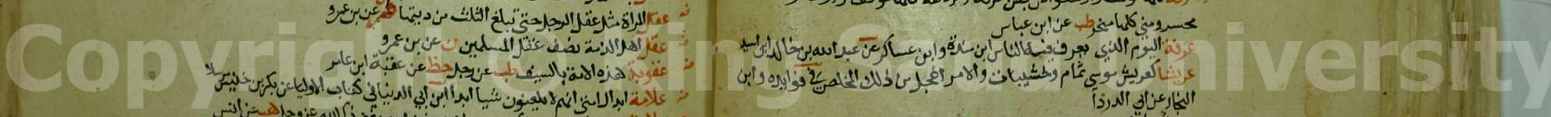 محسر ومنى كلها منحر طب عن ابن عباس
عرفة اليوم الذي يعرف فيه الناس ابن مندة وابن عساكر عن عبد الله بن خالد ابن اسيد
عريشا كعريش موسى ثمام وخشيبات والامر اعجل من ذلك المخلص في فوايده وابن
النجار عن ابي الدردا
عقل المراة مثل عقل الرجل حتى تبلغ الثلث من ديتها عن بن عمرو
عقل اهل الذمة نصف عقل المسلمين ن عن بن عمرو
عقوبة هذه الامة بالسيف طب عن رجل خط عن عقبة ابن عامر
علامة ابدال امتي انهم لا يلعنون شيا ابدا ابن ابي الدنيا في كتاب الاوليا عن بكر بن خنيس مرسلا
Copyright King Saud University